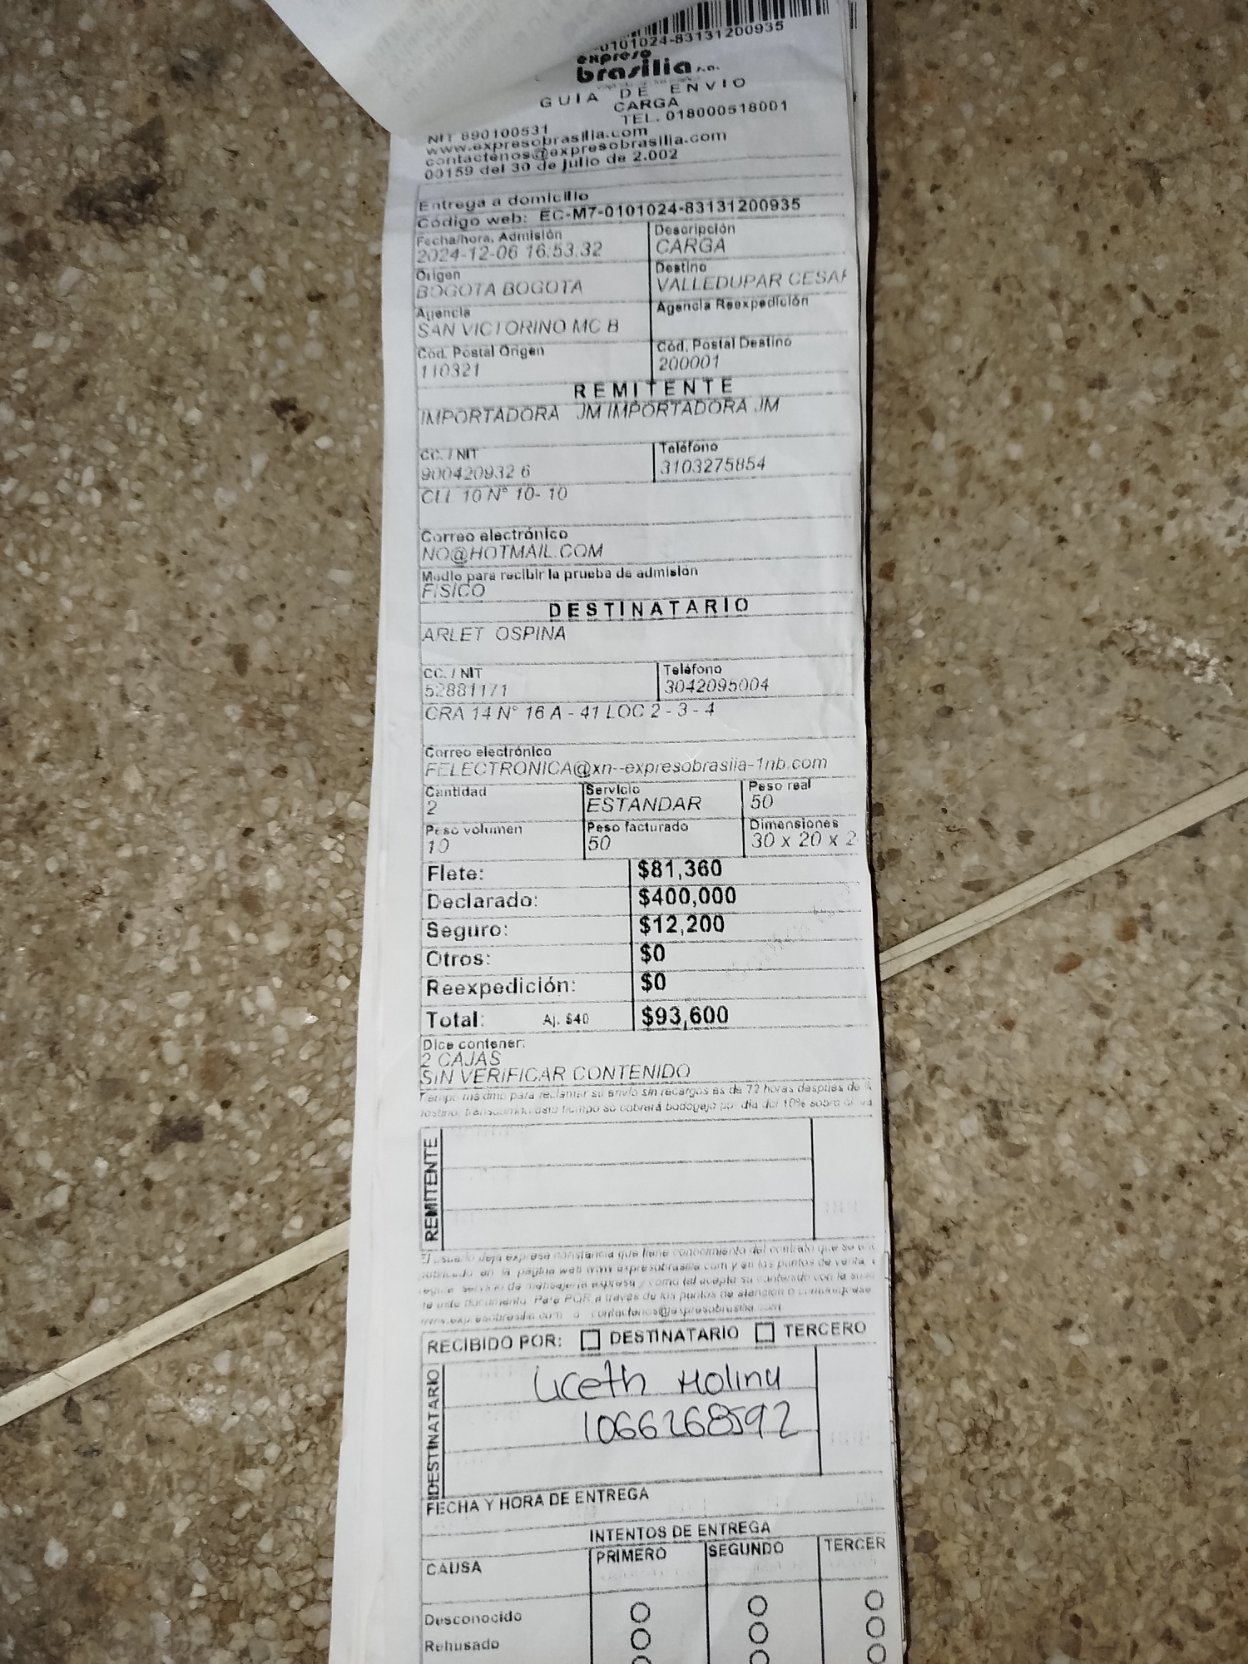 -0101024-83131200935
expreso
brasilia s.a.
GUIA DE ENVIO
CARGA
TEL. 018000518001
NIT 890100531
www.expresobrasilia.com
contactenos@expresobrasilia.com
00159 del 30 de julio de 2.002
Entrega a domicilio
Código web: EC-M7-0101024-83131200935
Fecha/hora. Admisión Descripción
2024-12-06 16:53:32 CARGA
Origen Destino
BOGOTA BOGOTA VALLEDUPAR CESAR
Agencia Agencia Reexpedición
SAN VICTORINO MC B
Cód. Postal Origen Cód. Postal Destino
110321 200001
REMITENTE
IMPORTADORA JM IMPORTADORA JM
CC. / NIT Teléfono
900420932 6 3103275854
CLL 10 N° 10- 10
Correo electrónico
NO@HOTMAIL.COM
Medio para recibir la prueba de admisión
FISICO
DESTINATARIO
ARLET OSPINA
CC. / NIT Teléfono
52881171 3042095004
CRA 14 N° 16 A - 41 LOC 2 - 3 - 4
Correo electrónico
FELECTRONICA@xn--expresobrasiia-1nb.com
Cantidad Servicio Peso real
2 ESTANDAR 50
Peso volumen Peso facturado Dimensiones
10 50 30 x 20 x 2
Flete: $81,360
Declarado: $400,000
Seguro: $12,200
Otros: $0
Reexpedición: $0
Total: Aj. $40 $93,600
Dice contener:
2 CAJAS
SIN VERIFICAR CONTENIDO
Tiempo máximo para reclamar su envío sin recargos es de 72 horas después de
destino, transcurrido este tiempo se cobrará bodegaje por día del 10% sobre el
REMITENTE
El usuario deja expresa constancia que tiene conocimiento del contrato que se
publicado en la página web www.expresobrasilia.com y en los puntos de venta,
servicio de mensajería expresa y como tal acepta su contenido con la
de este documento. Para PQR a través de los puntos de atención o
www.expresobrasilia.com contactenos@expresobrasilia.com
RECIBIDO POR: DESTINATARIO TERCERO
DESTINATARIO
Liceth Molina
1066268592
FECHA Y HORA DE ENTREGA
INTENTOS DE ENTREGA
CAUSA PRIMERO SEGUNDO TERCER
Desconocido
Rehusado